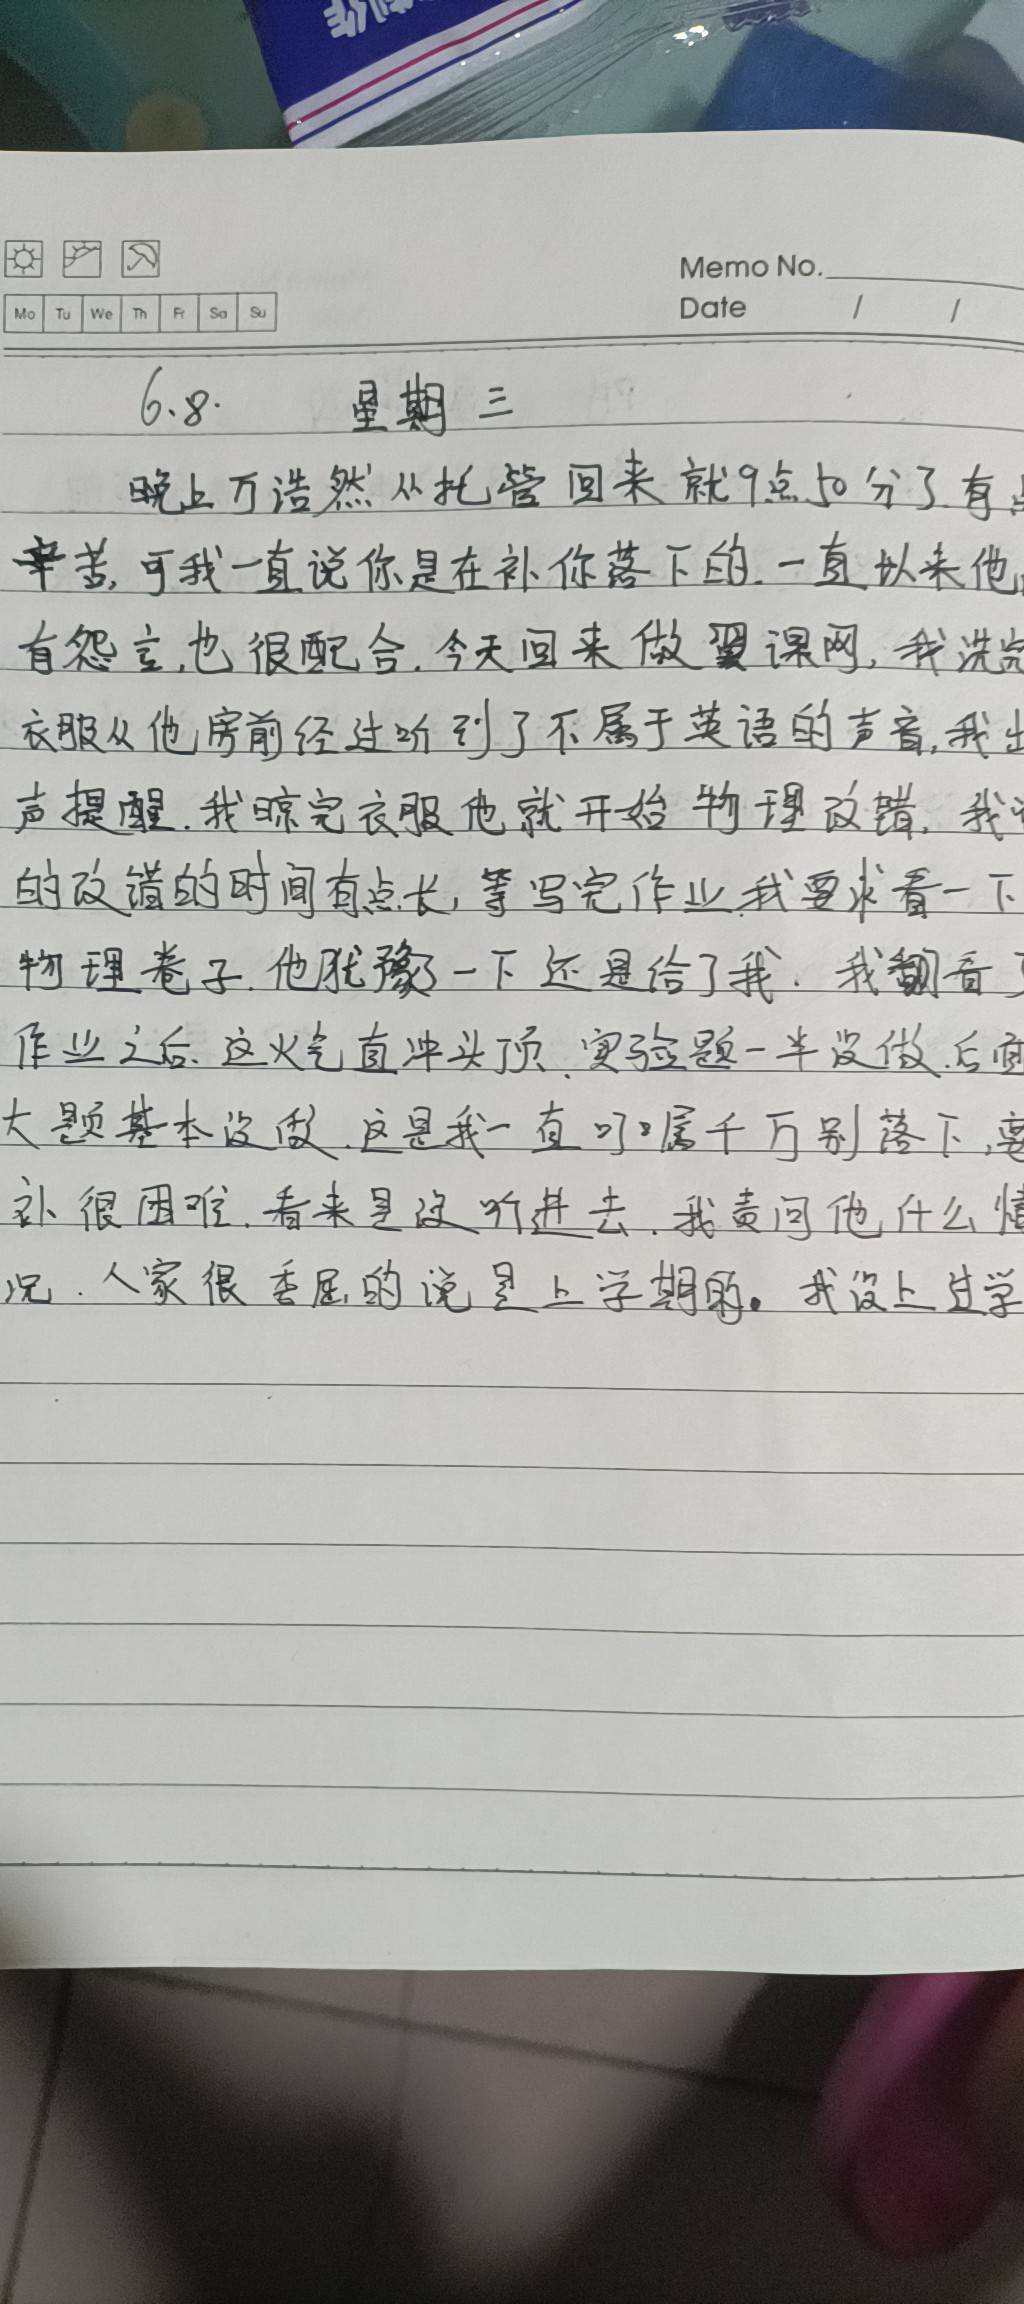 制作
Memo No.
Mo Tu We Th Fr Sa Su
Date / /
6.8. 星期三
晚上万浩然从托管回来就9点50分了.有
辛苦,可我一直说你是在补你落下的.一直以来他
有怨言,也很配合.今天回来做翼课网,我洗完
衣服从他房前经过听到了不属于英语的声音,我出
声提醒.我晾完衣服他就开始物理改错,我
的改错的时间有点长,等写完作业,我要求看一下
物理卷子.他犹豫了一下还是给了我.我翻看了
作业之后.这火气直冲头顶.实验题一半没做.后面
大题基本没做.这是我一直叮嘱千万别落下,要
补很困难.看来是没听进去.我责问他什么情
况.人家很委屈的说是上学期的。我没上过学